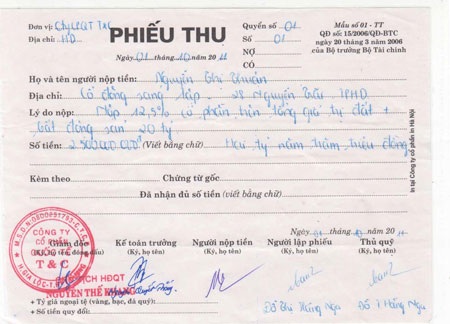 Đơn vị: Cty CP QT T&C
Địa chỉ: HD
PHIẾU THU
Ngày 01 tháng 10 năm 20 11
Quyển số 01
Số 01
NỢ
CÓ
Mẫu số 01 - TT
QĐ số: 15/2006/QĐ-BTC
ngày 20 tháng 3 năm 2006
của Bộ trưởng Bộ Tài chính
Họ và tên người nộp tiền: Nguyễn Thị Thuần
Địa chỉ: Cổ đông sáng lập - 28 Nguyễn Trãi TPHD
Lý do nộp: Nộp 12,5% cổ phần trên tổng giá trị đất +
bất động sản 20 tỷ
Số tiền: 2 500 000 000đ (Viết bằng chữ) Hai tỷ năm trăm triệu đồng
Kèm theo Chứng từ gốc
Đã nhận đủ số tiền (viết bằng chữ)
In tại Công ty cổ phần in Hà Nội
Ngày 01 tháng 10 năm 20 11
Giám đốc
Kế toán trưởng
(Ký, họ tên)
Người nộp tiền
(Ký, họ tên)
Người lập phiếu
(Ký, họ tên)
Thủ quỹ
(Ký, họ tên)
CÔNG TY
CỔ PHẦN
QUỐC TẾ
T & C
CHỦ TỊCH HĐQT
NGUYỄN THẾ KHANG
Đỗ Thị Hằng Nga
Đỗ T Hằng Nga
+ Tỷ giá ngoại tệ (vàng, bạc, đá quý)
+ Số tiền quy đổi